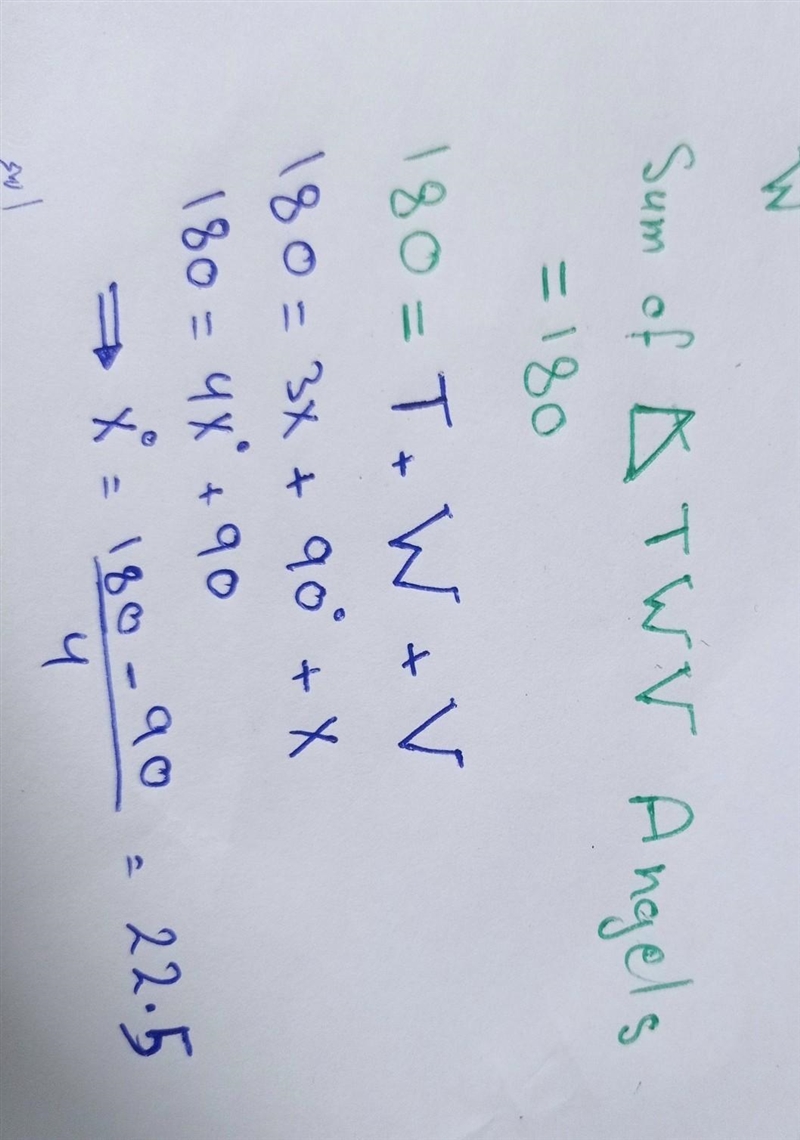 W
Sum of △ TWV Angels
= 180
180 = T + W + V
180 = 3x + 90° + x
180 = 4x° + 90
⇒ x° = 180 - 90 / 4 = 22.5